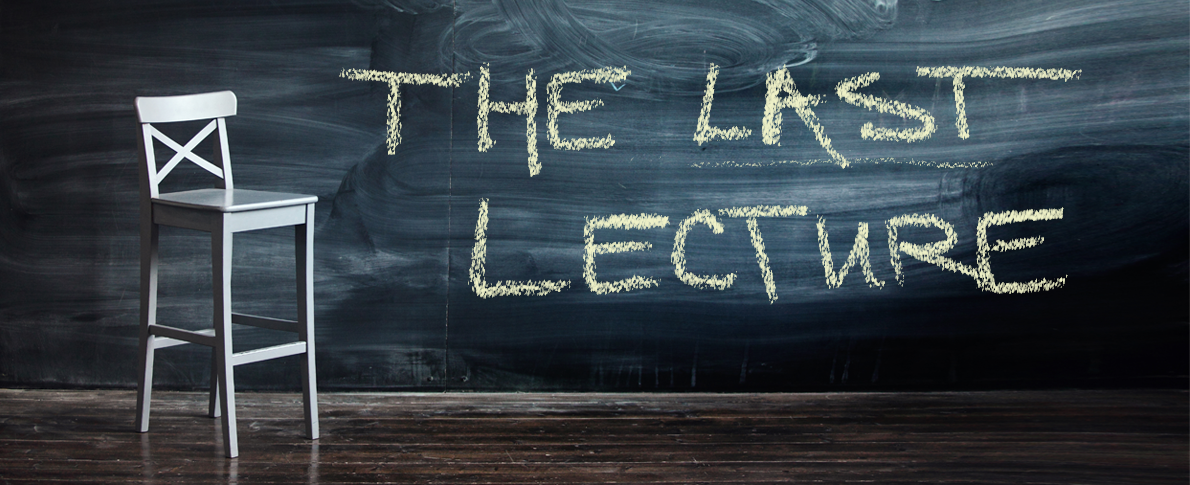 THE LAST
LECTURE